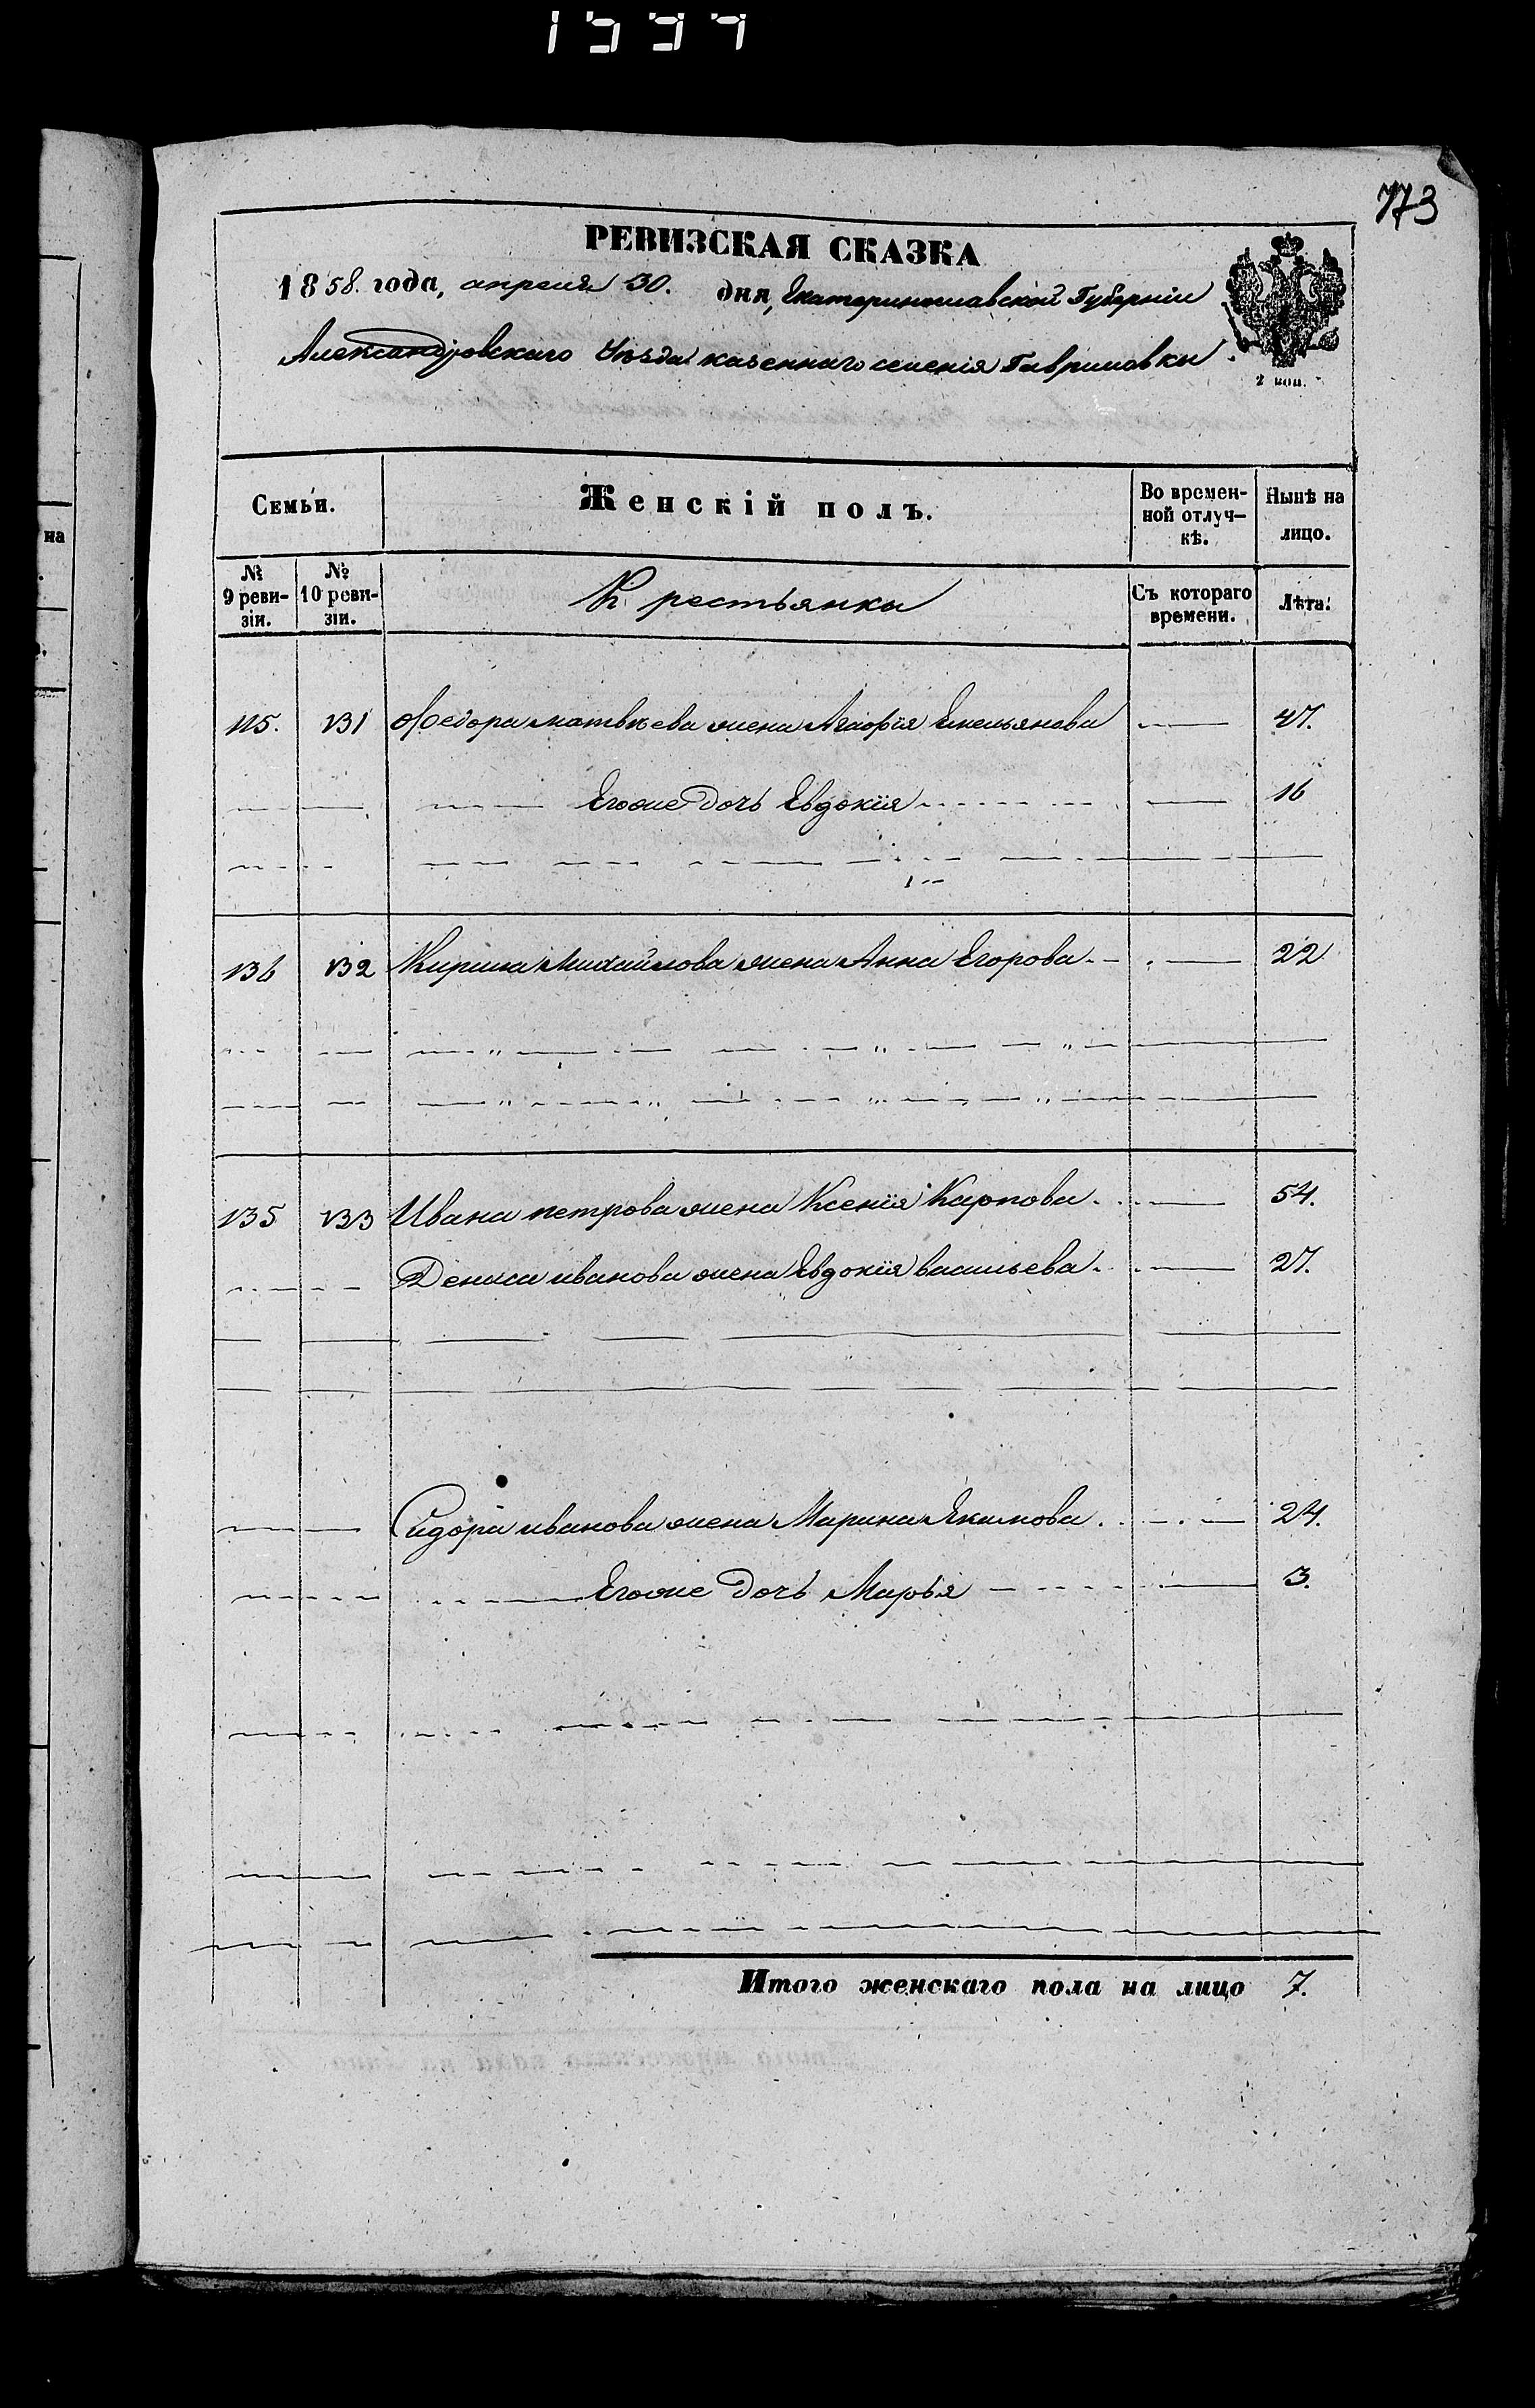 1597
773
РЕВИЗСКАЯ СКАЗКА
1858. года, апреля 30. дня, Екатеринославской Губерніи
Александровскаго Уѣзда казеннаго селенія Гавриловки
2 коп.
Семьи.
Женскій полъ.
Во времен-
ной отлуч-
кѣ.
Нынѣ на
лицо.
№
9 реви-
зіи.
№
10 реви-
зіи.
Крестьянки
Съ котораго
времени.
Лѣта.
на
115. 131 Федора матвѣева жена Агафія Емельянова 47.
Егоже дочь Евдокія 16
136 132 Кирила Михайлова жена Анна Егорова 22
135 133 Ивана петрова жена Ксенія Карпова 54.
Дениса иванова жена Евдокія васильева 27.
Сидора иванова жена Марина Якимова 24.
Егоже дочь Марья 3.
Итого женскаго пола на лицо 7.